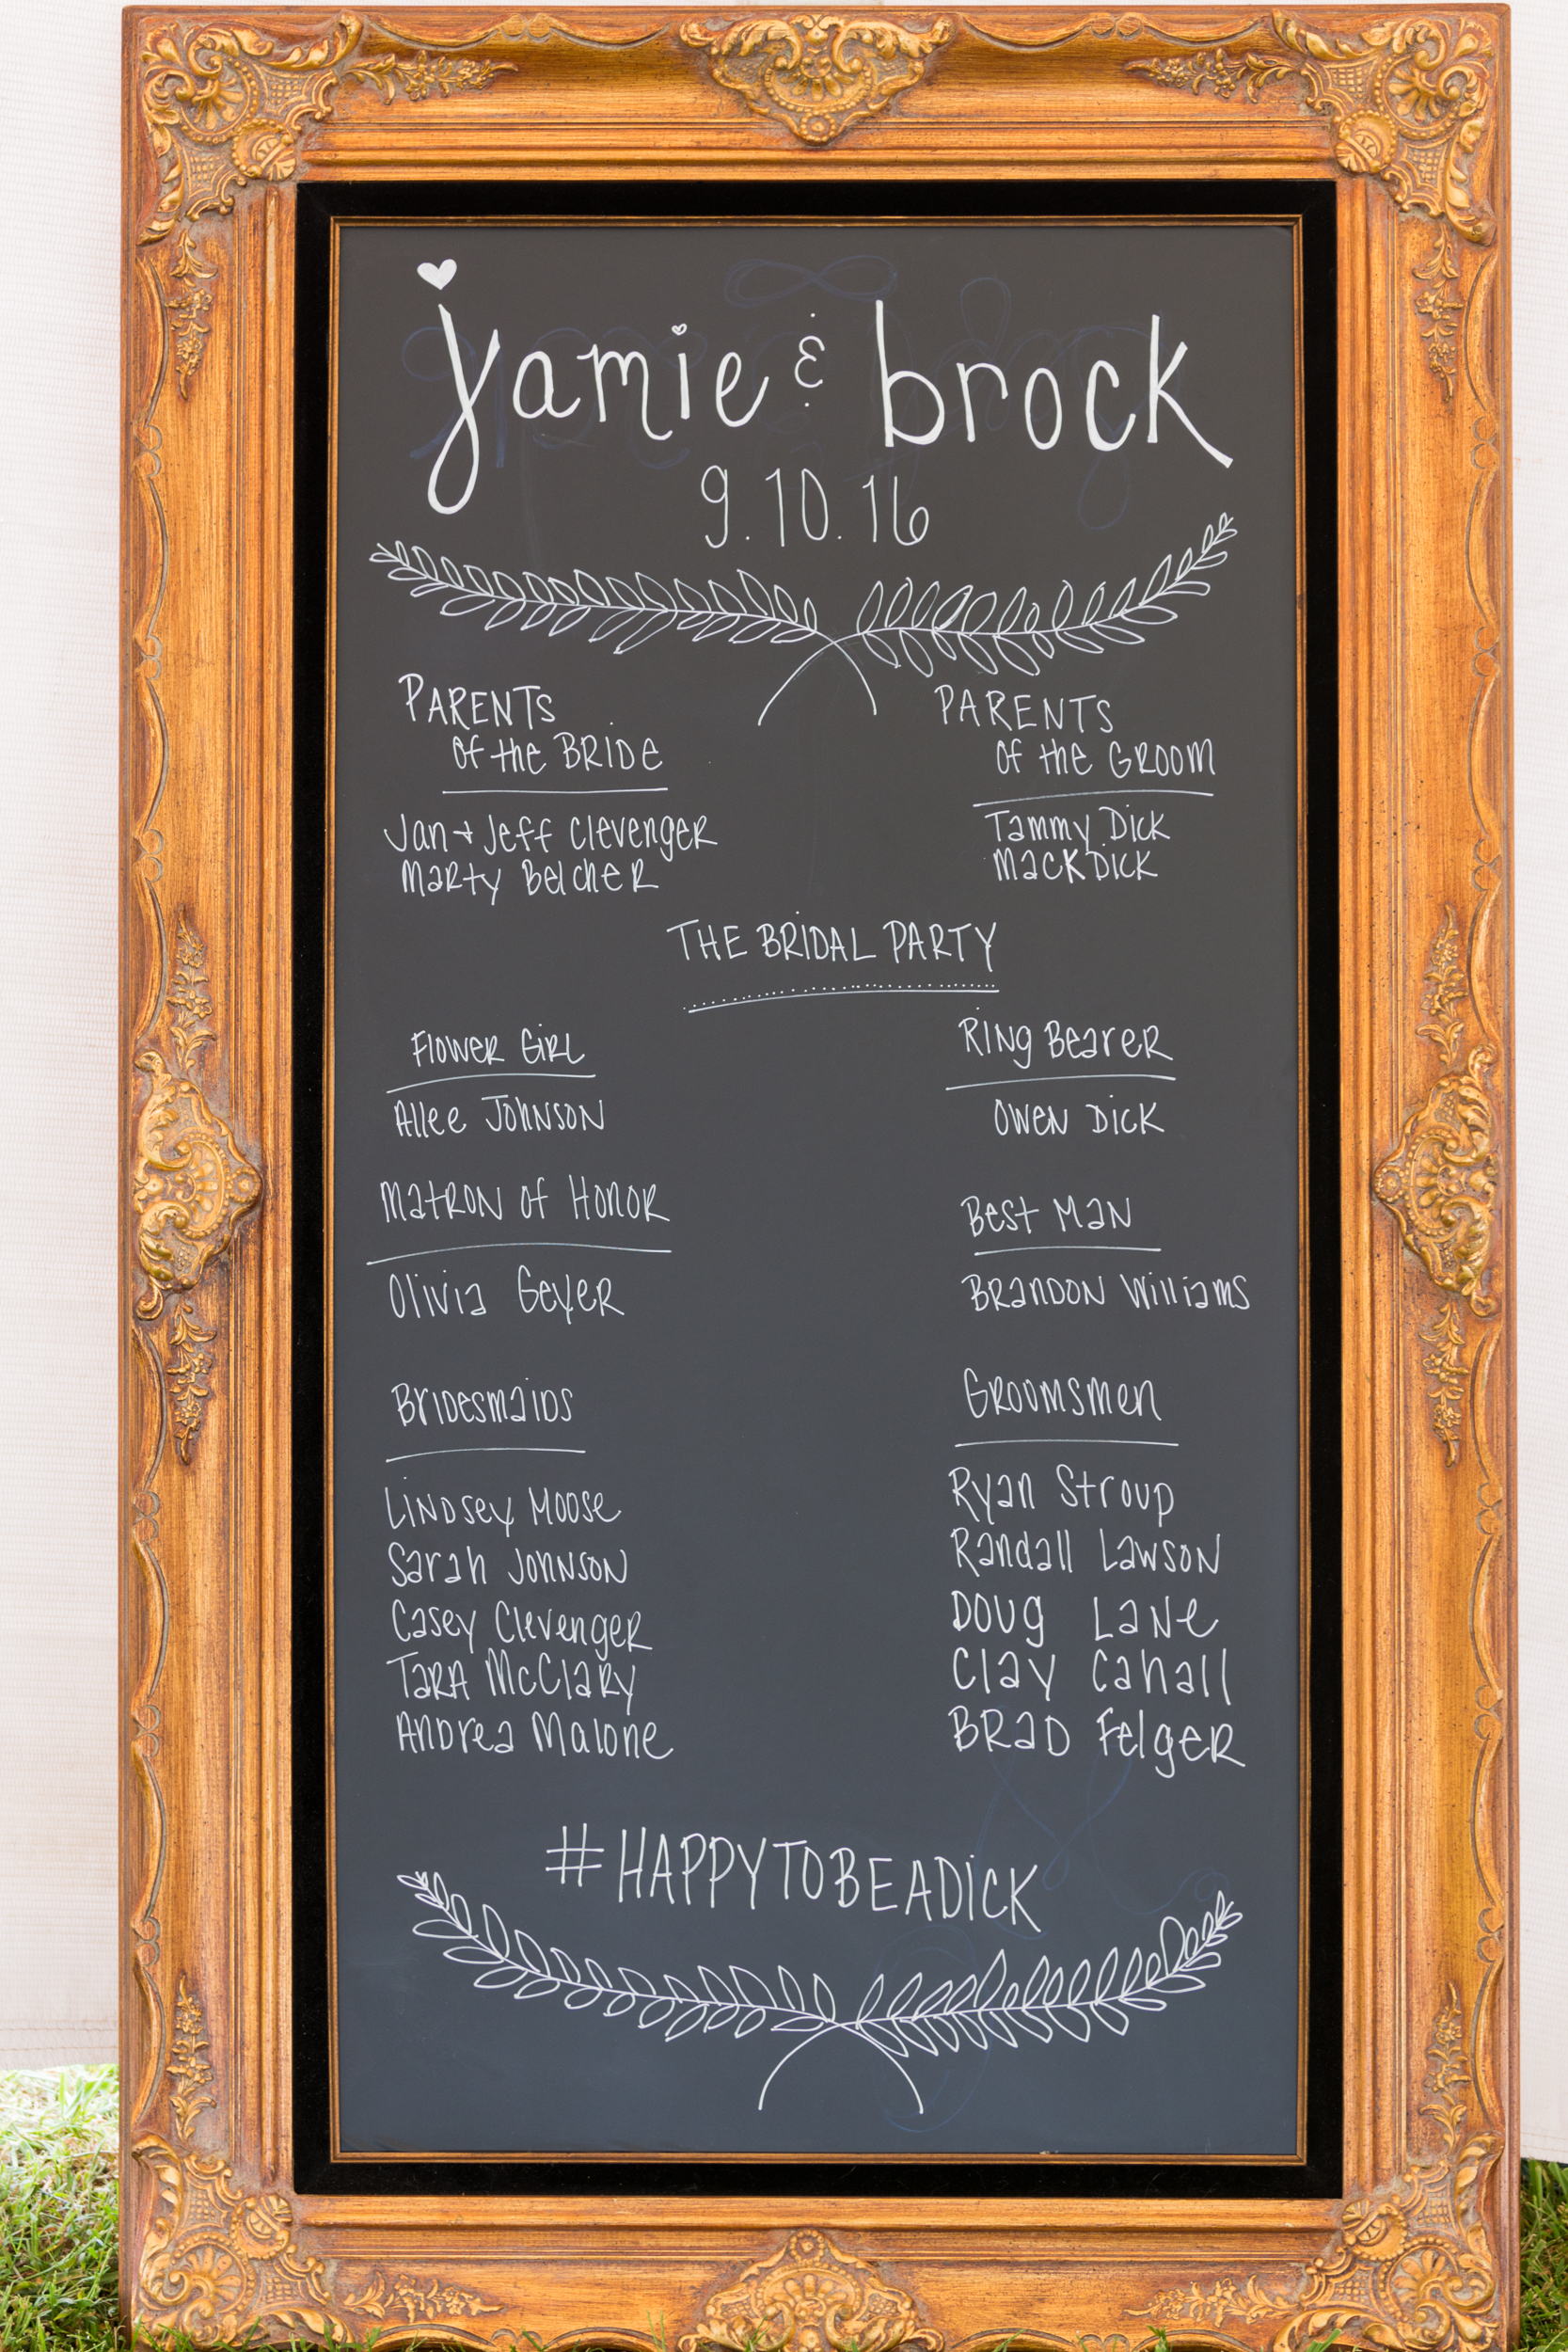 jamie & brock
9.10.16
PARENTS
of the BRIDE
Jan + Jeff Clevenger
Marty Belcher
PARENTS
of the GROOM
Tammy Dick
Mack Dick
THE BRIDAL PARTY
Flower Girl
Allee Johnson
Ring Bearer
Owen Dick
Matron of Honor
Olivia Geyer
Best Man
Brandon Williams
Bridesmaids
Lindsey Moose
Sarah Johnson
Casey Clevenger
Tara McClary
Andrea Malone
Groomsmen
Ryan Stroup
Randall Lawson
Doug Lane
Clay Cahall
Brad Felger
#HAPPYTOBEADiCK